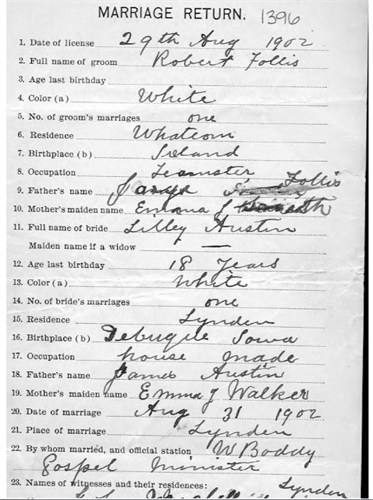 MARRIAGE RETURN. 1396
1. Date of license 29th Aug 1902
2. Full name of groom Robert Follis
3. Age last birthday
4. Color (a) White
5. No. of groom's marriages one
6. Residence Whatcom
7. Birthplace (b)
8. Occupation Teamster
9. Father's name Follis
10. Mother's maiden name Emma J
11. Full name of bride Lilley Austin
Maiden name if a widow —
12. Age last birthday 18 Years
13. Color (a) White
14. No. of bride's marriages one
15. Residence Lynden
16. Birthplace (b) Debuque Iowa
17. Occupation house made
18. Father's name James Austin
19. Mother's maiden name Emma J Walker
20. Date of marriage Aug 31 1902
21. Place of marriage Lynden
22. By whom married, and official station W Boddy
Gospel Minister
23. Names of witnesses and their residences: Lynden